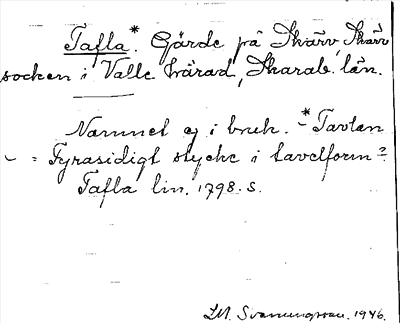 Tafla.* Gärde på Skärv, Skärv
socken i Valle härad, Skarab. län.
Namnet ej i bruk. - *Tavlan
- = Fyrasidigt stycke i tavelform?
Tafla lin. 1798. S.
Svanungsson. 1946.